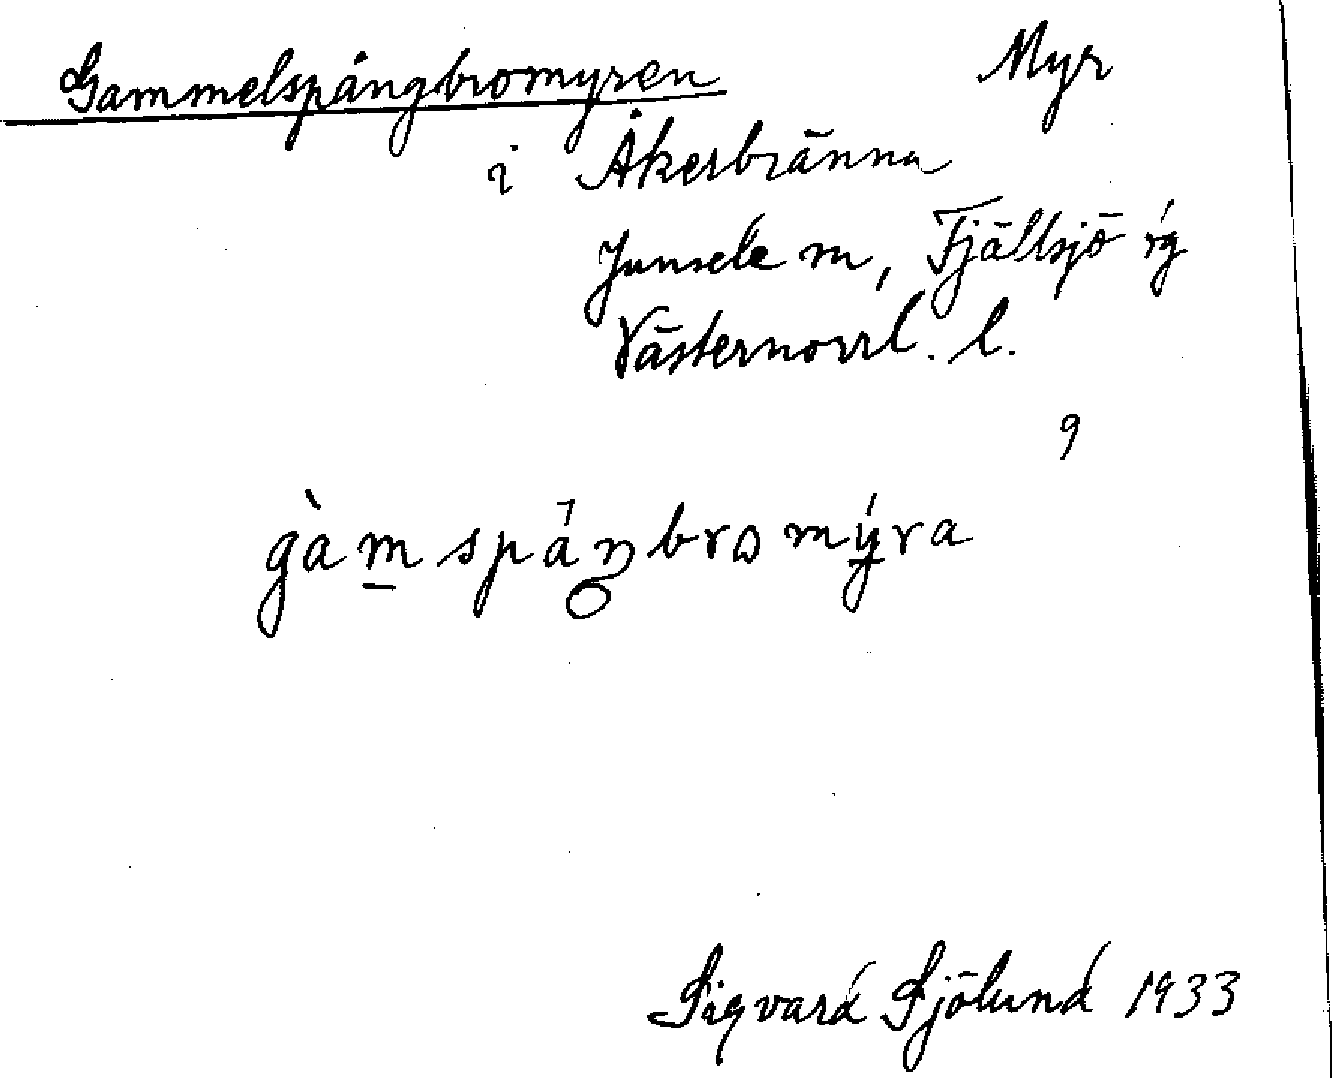 Gammelspångbromyren Myr
i Åkerbränna
Junsele m, Fjällsjö
Västernorrl. l.
9
gàmspåŋbromýra
Sigvard Sjölund 1933